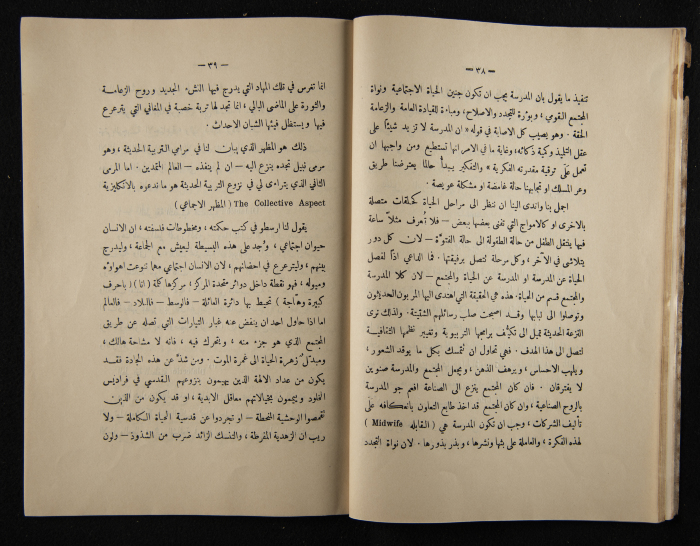 — ٣٨ —
تنفيذ ما يقول بان المدرسة يجب ان تكون جنين الحياة الاجتماعية ونواة
المجتمع القومي، وبؤرة للتجدد والاصلاح، ومباءة للقيادة العامة والزعامة
الحقة. وهو يصيب كل الاصابة في قوله « ان المدرسة لا تزيد شيئاً على
عقل التلميذ وكمية ذكائه، وغاية ما في الامر انها تستطيع ومن واجبها ان
تعمل على ترقية مقدرته الفكرية » والتفكير يبدأ حالما يعترضنا طريق
وعر المسلك او تجابهنا حالة غامضة او مشكلة عويصة.
اجمل بنا واندى الينا ان ننظر الى مراحل الحياة كحلقات متصلة
بالاخرى او كالامواج التي تفنى بعضها ببعض — فلا أعرف مثلاً ساعة
فيها ينتقل الطفل من حالة الطفولة الى حالة الفتوّة — لان كل دور
يتلاشى في الآخر، وكل مرحلة تتصل برفيقتها. فما الداعي اذاً لفصل
الحياة عن المدرسة او المدرسة عن الحياة والمجتمع — لان كلا المدرسة
والمجتمع قسم من الحياة. هذه هي الحقيقة التي اهتدى اليها المربون الحديثون
وتوصلوا الى لبابها وقد اصبحت صلب رسائلهم الشيئة. ولذلك ترى
النزعة الحديثة تميل الى تكيّف برامجها التربيوية وتغيير نظمها الثقافية
لتصل الى هذا الهدف. فهي تحاول ان تتمسك بكل ما يوقد الشعور،
ويلهب الاحساس، ويرهف الذهن، ويجعل المجتمع والمدرسة صنوين
لا يفترقان. فان كان المجتمع ينزع الى الصناعة افعم جو المدرسة
بالروح الصناعية، وان كان المجتمع قد اخذ طابع التعاون بانعكافه على
تأليف الشركات، وجب ان تكون المدرسة هي ( القابله Midwife )
لهذه الفكرة، والعاملة على بثها ونشرها، وبذر بذورها. لان نواة التجدد
— ٣٩ —
انما تغرس في تلك المهاد التي يدرج فيها النشء الجديد وروح الزعامة
والثورة على الماضي البالي، انما تجد لها تربة خصبة في المغاني التي يترعرع
فيها ويستظل فيئها الشبان الاحداث.
ذلك هو المظهر الذي يبان لنا في مرامي التربية الحديثة، وهو
مرمى نبيل تجده ينزع اليه — ان لم ينفذه — العالم المتمدين. اما المرمى
الثاني الذي يتراءى لي في نزوع التربية الحديثة هو ما ندعوه بالانكليزية
The Collective Aspect ( المظهر الاجماعي )
يقول لنا ارسطو في كتب حكمته، ومخطوطات فلسفته، ان الانسان
حيوان اجتماعي، وُجد على هذه البسيطة ليعيش مع الجماعة، وليدرج
بينهم، وليترعرع في احضانهم، لان الانسان اجتماعي مهما تنوعت اهواؤه
وميوله، فهو نقطة داخل دوائر متحدة المركز، مركزها كلمة ( انا ) ( باحرف
كبيرة وهّاجة ) تحيط بها دائرة العائلة — فالوسط — فالبلاد — فالعالم
اما اذا حاول احد ان ينفض عنه غبار التيارات التي تصله عن طريق
المجتمع الذي هو جزء منه، ويتحرك فيه، فانه لا مشاحة هالك،
ومبدّل زهرة الحياة الى غمرة الموت. ومن شذّ عن هذه الجادة فقد
يكون من عداد الالهة الذين يهيمون بنزوعهم القدسي في فراديس
الخلود ويجمعون بخيالاتهم معاقل الابدية، او قد يكون من الذين
تقمصوا الوحشية المنحطة — او تجردوا عن قدسية الحياة الكاملة — ولا
ريب ان الزهدية المفرطة، والتنسك الزائد ضرب من الشذوذ — ولون